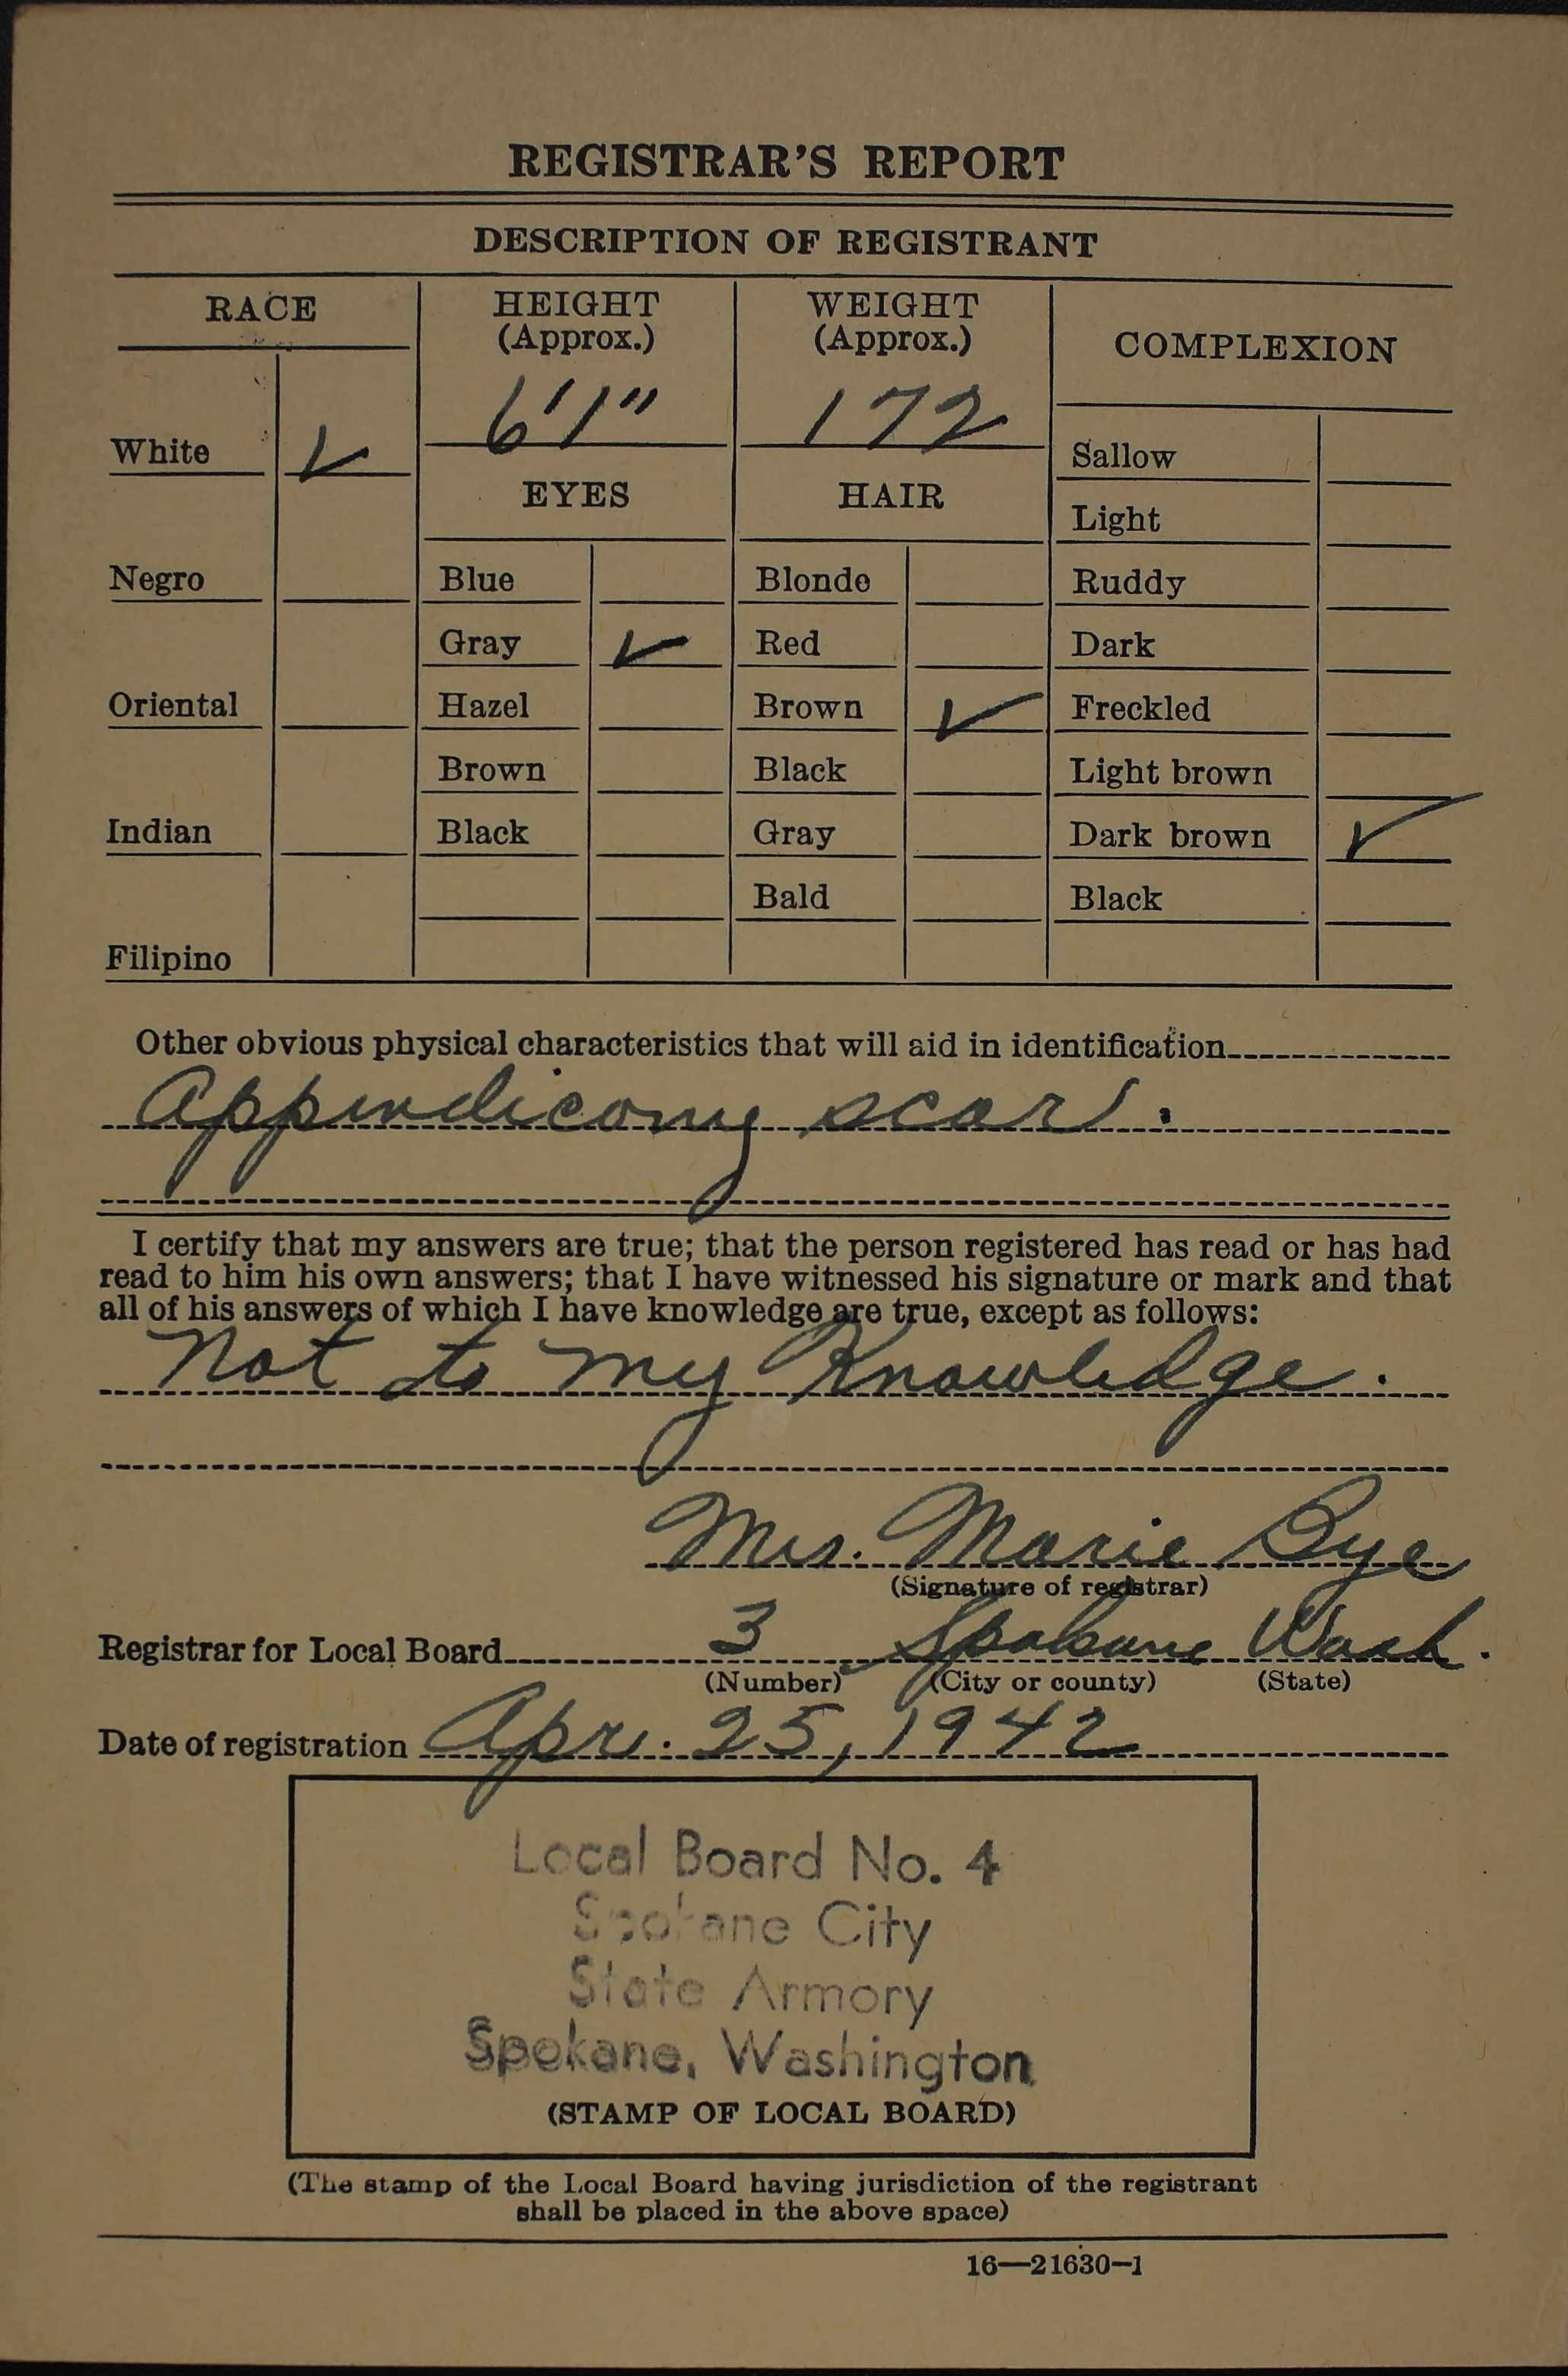 REGISTRAR'S REPORT
DESCRIPTION OF REGISTRANT
RACE
HEIGHT (Approx.)
WEIGHT (Approx.)
COMPLEXION
6'1"
172
White ✓
Sallow
EYES
HAIR
Light
Negro
Blue
Blonde
Ruddy
Gray ✓
Red
Dark
Oriental
Hazel
Brown ✓
Freckled
Brown
Black
Light brown
Indian
Black
Gray
Dark brown ✓
Bald
Black
Filipino
Other obvious physical characteristics that will aid in identification
Appendicomy scar.
I certify that my answers are true; that the person registered has read or has had
read to him his own answers; that I have witnessed his signature or mark and that
all of his answers of which I have knowledge are true, except as follows:
Not to my Knowledge.
Mrs. Marie Bye
(Signature of registrar)
Registrar for Local Board 3 Spokane Wash.
(Number) (City or county) (State)
Date of registration Apr. 25, 1942
Local Board No. 4
Spokane City
State Armory
Spokane, Washington
(STAMP OF LOCAL BOARD)
(The stamp of the Local Board having jurisdiction of the registrant
shall be placed in the above space)
16—21630-1